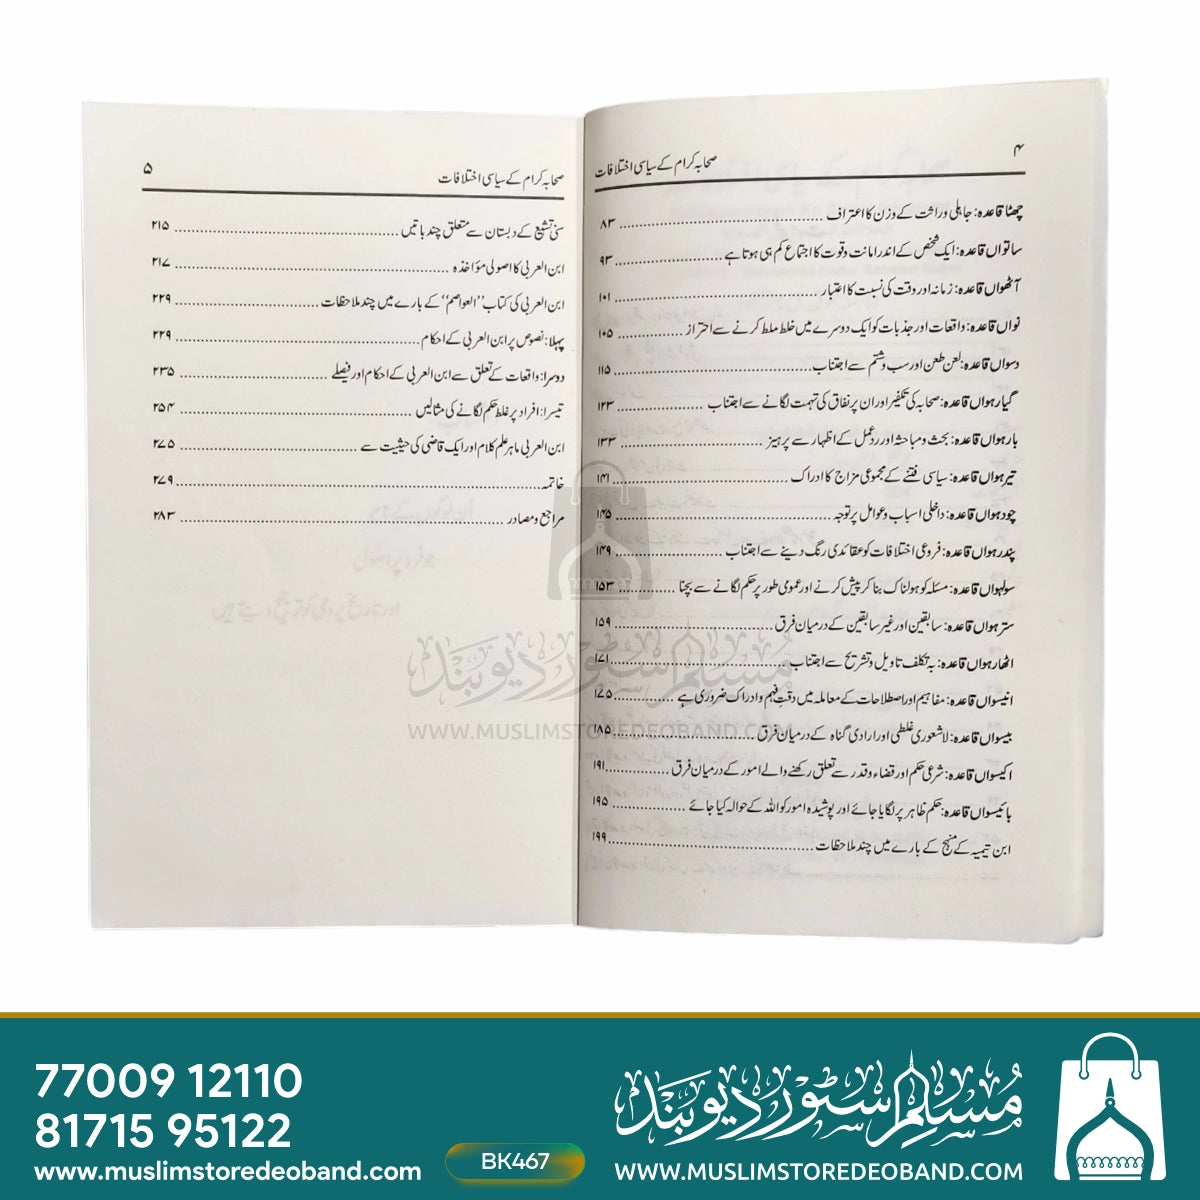 ۴
صحابہ کرام کے سیاسی اختلافات
چھٹا قاعدہ: جاہلی وراثت کے وزن کا اعتراف ........ ۸۳
ساتواں قاعدہ: ایک شخص کے اندر امانت وقوت کا اجتماع کم ہی ہوتا ہے ........ ۹۳
آٹھواں قاعدہ: زمانہ اور وقت کی نسبت کا اعتبار ........ ۱۰۱
نواں قاعدہ: واقعات اور جذبات کو ایک دوسرے میں خلط ملط کرنے سے احتراز ........ ۱۰۵
دسواں قاعدہ: لعن طعن اور سب وشتم سے اجتناب ........ ۱۱۵
گیارہواں قاعدہ: صحابہ کی تکفیر اور ان پر نفاق کی تہمت لگانے سے اجتناب ........ ۱۲۳
بارہواں قاعدہ: بحث و مباحثہ اور ردعمل کے اظہار سے پرہیز ........ ۱۳۳
تیرہواں قاعدہ: سیاسی فتنے کے مجموعی مزاج کا ادراک ........ ۱۴۱
چودہواں قاعدہ: داخلی اسباب وعوامل پر توجہ ........ ۱۴۵
پندرہواں قاعدہ: فروعی اختلافات کو عقائدی رنگ دینے سے اجتناب ........ ۱۴۹
سولہواں قاعدہ: مسئلہ کو ہولناک بنا کر پیش کرنے اور عمومی طور پر حکم لگانے سے بچنا ........ ۱۵۳
سترہواں قاعدہ: سابقین اور غیر سابقین کے درمیان فرق ........ ۱۵۹
اٹھارہواں قاعدہ: بہ تکلف تاویل وتشریح سے اجتناب ........ ۱۷۱
انیسواں قاعدہ: مفاہیم اور اصطلاحات کے معاملہ میں دقتِ فہم وادراک ضروری ہے ........ ۱۷۵
بیسواں قاعدہ: لاشعوری غلطی اور ارادی گناہ کے درمیان فرق ........ ۱۸۵
اکیسواں قاعدہ: شرعی حکم اور قضاء وقدر سے تعلق رکھنے والے امور کے درمیان فرق ........ ۱۹۱
بائیسواں قاعدہ: حکم ظاہر پر لگایا جائے اور پوشیدہ امور کو اللہ کے حوالہ کیا جائے ........ ۱۹۵
ابن تیمیہ کے منہج کے بارے میں چند ملاحظات ........ ۱۹۹
۵
صحابہ کرام کے سیاسی اختلافات
سنی تشیع کے دبستان سے متعلق چند باتیں ........ ۲۱۵
ابن العربی کا اصولی مؤاخذہ ........ ۲۱۷
ابن العربی کی کتاب "العواصم" کے بارے میں چند ملاحظات ........ ۲۲۹
پہلا: نصوص پر ابن العربی کے احکام ........ ۲۲۹
دوسرا: واقعات کے تعلق سے ابن العربی کے احکام اور فیصلے ........ ۲۳۵
تیسرا: افراد پر غلط حکم لگانے کی مثالیں ........ ۲۵۴
ابن العربی ماہر علم کلام اور ایک قاضی کی حیثیت سے ........ ۲۷۵
خاتمہ ........ ۲۷۹
مراجع ومصادر ........ ۲۸۳
مسلم سٹور دیوبند
WWW.MUSLIMSTOREDEOBAND.COM
77009 12110
81715 95122
www.muslimstoredeoband.com
BK467
مسلم سٹور دیوبند
WWW.MUSLIMSTOREDEOBAND.COM